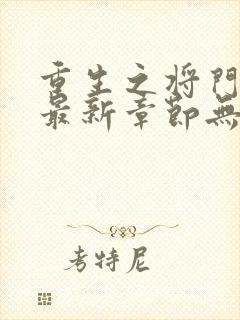 重生之将門
最新章節無
考特尼